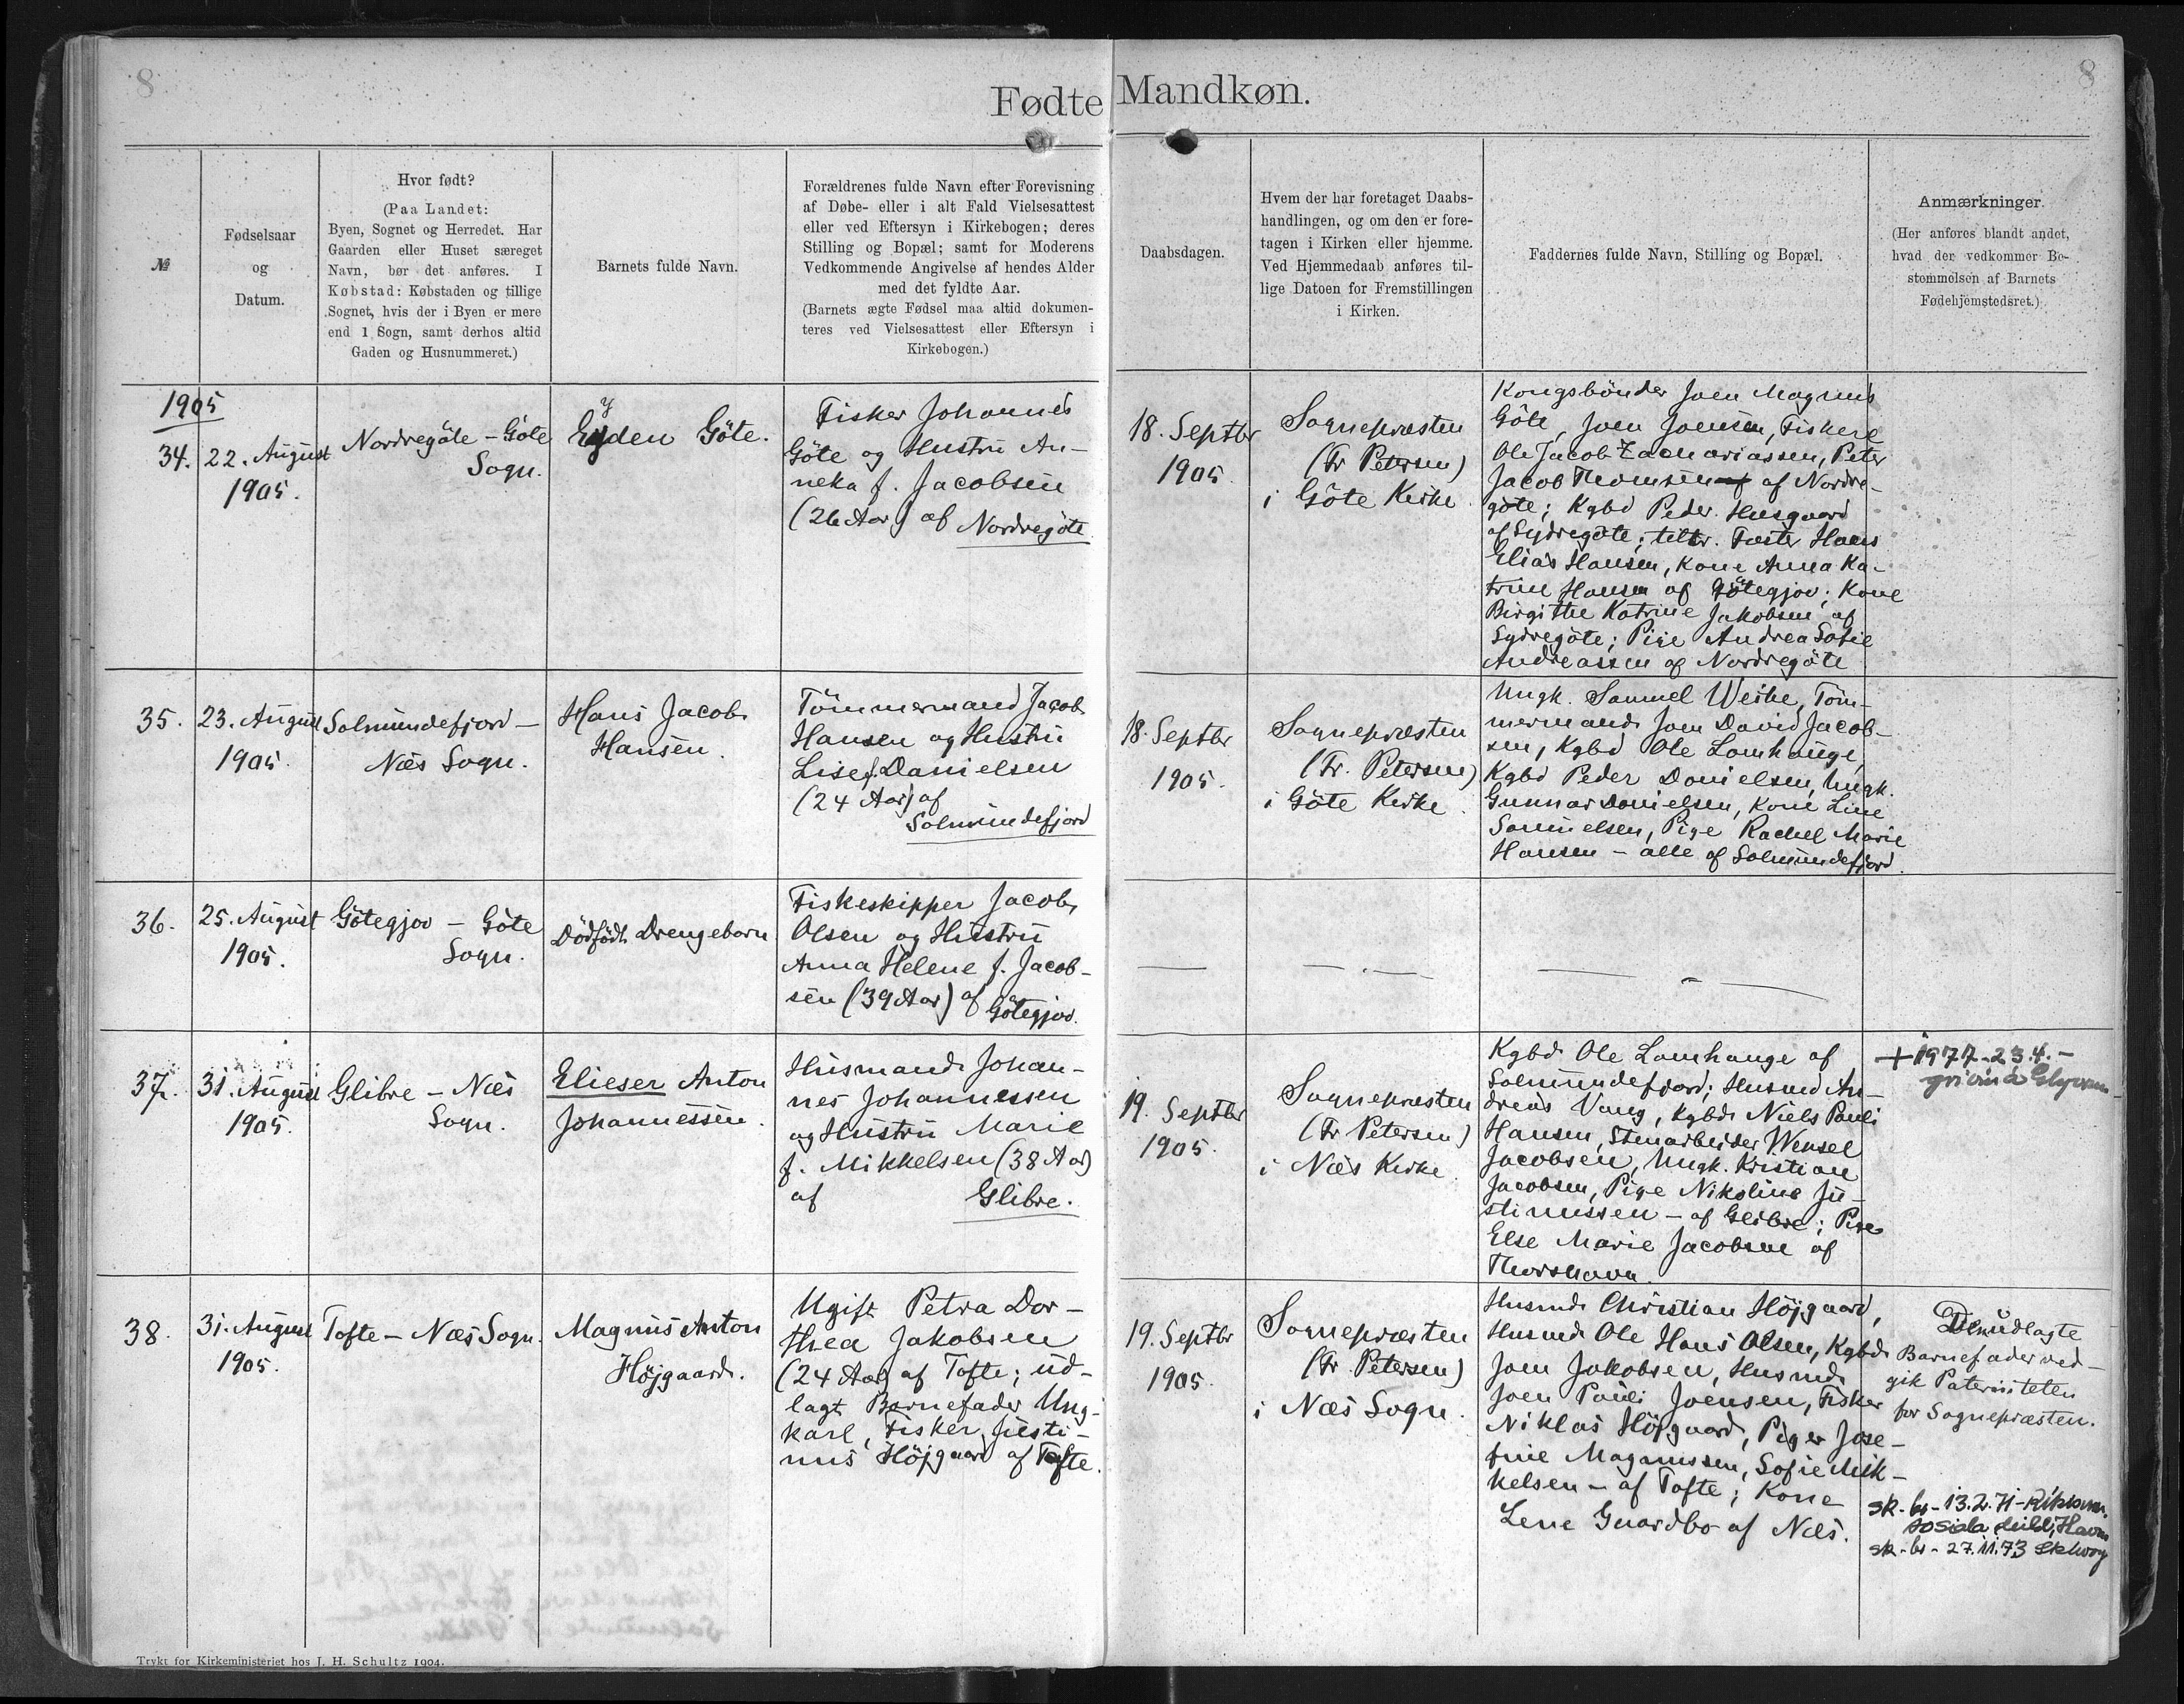 8
8
Fødte Mandkøn.
№
Fødselsaar
og
Datum.
Hvor født?
(Paa Landet:
Byen, Sognet og Herredet. Har
Gaarden eller Huset særeget
Navn, bør det anføres. I
Købstad: Købstaden og tillige
Sognet, hvis der i Byen er mere
end 1 Sogn, samt derhos altid
Gaden og Husnummeret.)
Barnets fulde Navn.
Forældrenes fulde Navn efter Forevisning
af Døbe- eller i alt Fald Vielsesattest
eller ved Eftersyn i Kirkebogen; deres
Stilling og Bopæl; samt for Moderens
Vedkommende Angivelse af hendes Alder
med det fyldte Aar.
(Barnets ægte Fødsel maa altid dokumen-
teres ved Vielsesattest eller Eftersyn i
Kirkebogen.)
Daabsdagen.
Hvem der har foretaget Daabs-
handlingen, og om den er fore-
tagen i Kirken eller hjemme.
Ved Hjemmedaab anføres til-
lige Datoen for Fremstillingen
i Kirken.
Faddernes fulde Navn, Stilling og Bopæl.
Anmærkninger.
(Her anføres blandt andet,
hvad der vedkommer Be-
stemmelsen af Barnets
Fødehjemstedsret.)
1905
34.
22. August
1905.
Nordregöte - Göte
Sogn.
Eyden Göte.
Fisker Johannes
Göte og Hustru An-
neka f. Jacobsen
(26 Aar) af Nordregöte
18. Septbr
1905.
Sognepræsten
(Fr Petersen)
i Göte Kirke
Kongsbönder Joen Magnus
Göte, Joen Joensen, Fiskere
Ole Jacob Zachariassen, Peter
Jacob Thomsen af Nordre-
göte; Kgbd Peder Husgaard
af Sydregöte; Hans
Elias Hansen, Kone Anna Ka-
trine Hansen af Götegjov; Kone
Birgithe Katrine Jakobsen af
Sydregöte; Pige Andrea Sofie
Andreassen af Nordregöte
35.
23. August
1905.
Solmundefjord -
Næs Sogn.
Hans Jacob
Hansen.
Tömmermand Jacob
Hansen og Hustru
Lise f. Danielsen
(24 Aar) af
Solmundefjord
18. Septbr
1905.
Sognepræsten
(Fr. Petersen)
i Göte Kirke.
Ungk. Samuel Weihe, Töm-
mermand Joen David Jacob-
sen, Kgbd Ole Lomhauge,
Kgbd Peder Danielsen, Ungk.
Gunnar Danielsen, Kone Line
Samuelsen, Pige Rachel Marie
Hansen - alle af Solmundefjord.
36.
25. August
1905.
Götegjov - Göte
Sogn.
Dödfödt Drengebarn
Fiskeskipper Jacob
Olsen og Hustru
Anna Helene f. Jacob-
sen (39 Aar) af Götegjov.
37.
31. August
1905.
Glibre - Næs
Sogn.
Elieser Anton
Johannessen.
Husmand Johan-
nes Johannessen
og Hustru Marie
f. Mikkelsen (38 Aar)
af Glibre.
19. Septbr
1905.
Sognepræsten
(Fr Petersen)
i Næs Kirke
Kgbd Ole Lomhauge af
Solmundefjord; Husmd An-
dreas Vang, Kgbd Niels Pauli
Hansen, Stenarbejder Wensel
Jacobsen, Ungk. Kristian
Jacobsen, Pige Nikoline Ju-
stinussen - af Glibre; Pige
Else Marie Jacobsen af
Thorshavn.
+ 1977-23.4.-
38.
31. August
1905.
Tofte - Næs Sogn.
Magnus Anton
Höjgaard.
Ugift Petra Dor-
thea Jakobsen
(24 Aar) af Tofte; ud-
lagt Barnefader Ung-
karl, Fisker Justi-
nus Höjgaard af Tofte.
19. Septbr
1905.
Sognepræsten
(Fr Petersen)
i Næs Sogn.
Husmd Christian Höjgaard,
Husmd Ole Hans Olsen, Kgbd
Joen Jakobsen, Husmd
Joen Pauli Joensen, Fisker
Niklas Höjgaard, Piger Jose-
fine Magnussen, Sofie Mik-
kelsen - af Tofte; Kone
Lene Guardbo af Næs.
Den udlagte
Barnefader ved-
gik Paterniteten
for Sognepræsten.
sk-br-13.2.71-
sk-br-27.11.73
Trykt for Kirkeministeriet hos J. H. Schultz 1904.